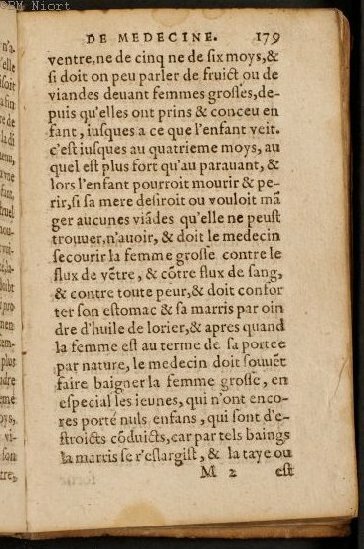 ©BM Niort
DE MEDECINE. 179
ventre, ne de cinq ne de six moys, &
si doit on peu parler de fruict ou de
viandes deuant femmes grosses, de-
puis qu'elles ont prins & conceu en
fant, iusques a ce que l'enfant veit.
c'est iusques au quatrieme moys, au
quel est plus fort qu'au parauant, &
lors l'enfant pourroit mourir & pe-
rir, si sa mere desiroit ou vouloit mã
ger aucunes viãdes qu'elle ne peust
trouuer, n'auoir, & doit le medecin
secourir la femme grosse contre le
flux de vẽtre, & cõtre flux de sang,
& contre toute peur, & doit confor
ter son estomac & sa marris par oin
dre d'huile de lorier, & apres quand
la femme est au terme de sa portee
par nature, le medecin doit souuẽt
faire baigner la femme grosse, en
especial les ieunes, qui n'ont enco-
res porté nuls enfans, qui sont d'e-
stroicts cõduicts, car par tels baings
la marris se r'eslargist, & la taye ou
M 2 est